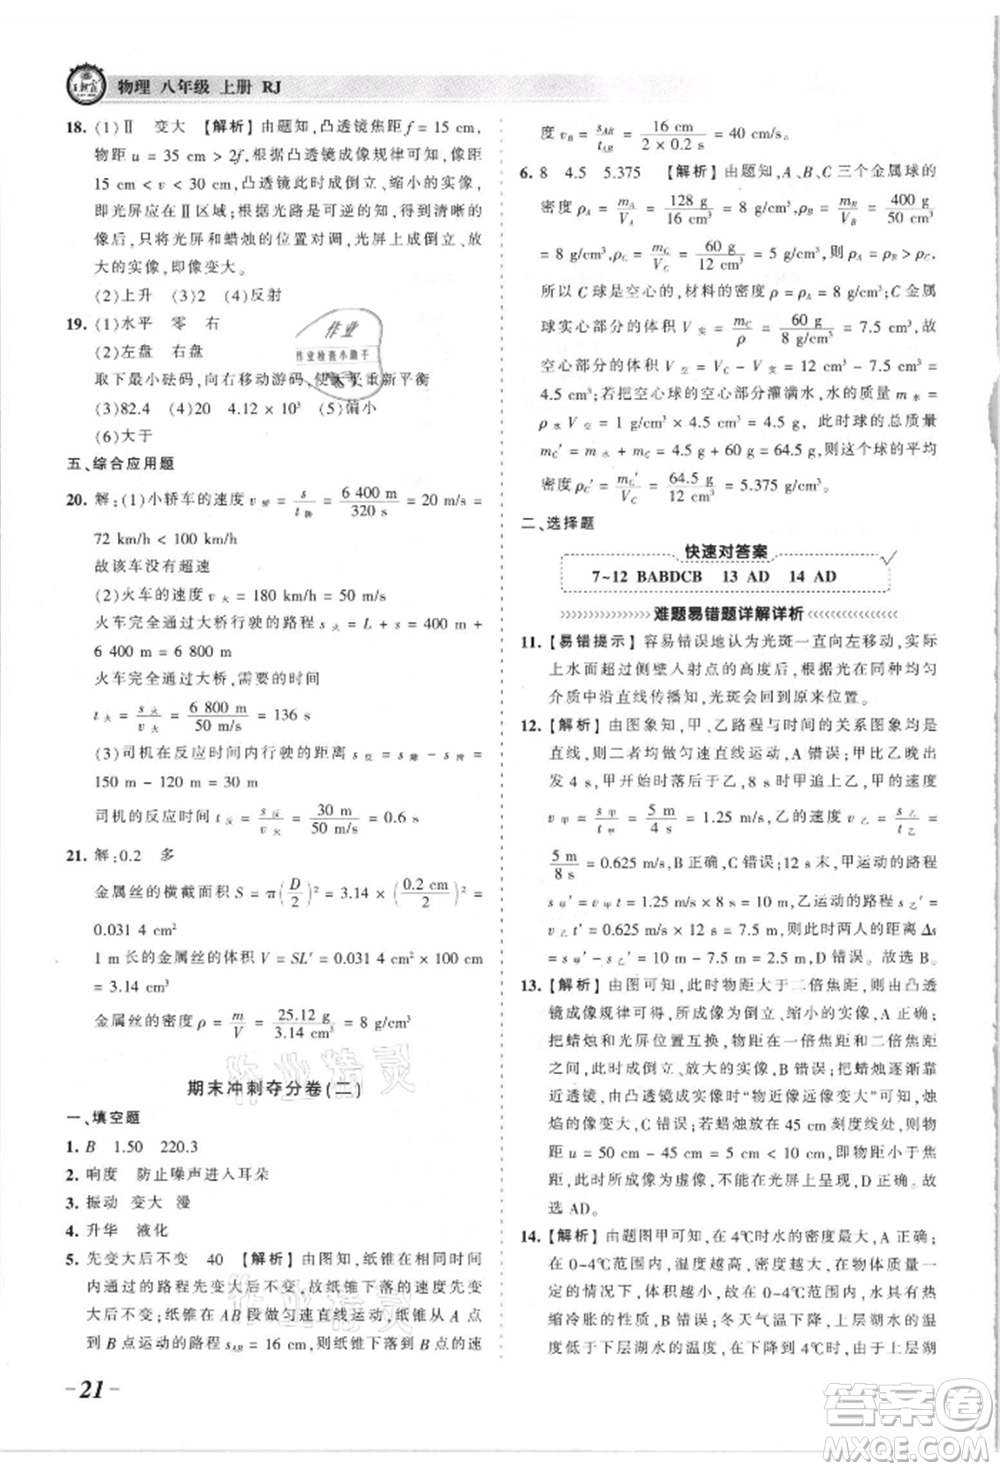 物理 八年级 上册 RJ
18. (1)Ⅱ 变大 【解析】由题知,凸透镜焦距 f = 15 cm,
物距 u = 35 cm > 2f,根据凸透镜成像规律可知,像距
15 cm < v < 30 cm,凸透镜此时成倒立、缩小的实像,
即光屏应在Ⅱ区域;根据光路是可逆的知,得到清晰的
像后,只将光屏和蜡烛的位置对调,光屏上成倒立、放
大的实像,即像变大。
(2)上升 (3)2 (4)反射
19. (1)水平 零 右
(2)左盘 右盘
取下最小砝码,向右移动游码,使天平重新平衡
(3)82.4 (4)20 4.12 × 10³ (5)偏小
(6)大于
五、综合应用题
20. 解:(1)小轿车的速度 v轿 = s/t轿 = 6 400 m/320 s = 20 m/s =
72 km/h < 100 km/h
故该车没有超速
(2)火车的速度 v火 = 180 km/h = 50 m/s
火车完全通过大桥行驶的路程 s火 = L + s =
6 400 m + 400 m = 6 800 m
火车完全通过大桥,需要的时间
t火 = s火/v火 = 6 800 m/50 m/s = 136 s
(3)司机在反应时间内行驶的距离 s反 = s障 - s刹 =
150 m - 120 m = 30 m
司机的反应时间 t反 = s反/v火 = 30 m/50 m/s = 0.6 s
21. 解:0.2 多
金属丝的横截面积 S = π(D/2)² = 3.14 × (0.2 cm/2)² =
0.031 4 cm²
1 m 长的金属丝的体积 V = SL' = 0.031 4 cm² × 100 cm =
3.14 cm³
金属丝的密度 ρ = m/V = 25.12 g/3.14 cm³ = 8 g/cm³
期末冲刺夺分卷(二)
一、填空题
1. B 1.50 220.3
2. 响度 防止噪声进入耳朵
3. 振动 变大 漫
4. 升华 液化
5. 先变大后不变 40 【解析】由图知,纸锥在相同时间
内通过的路程先变大后不变,故纸锥下落的速度先变
大后不变;纸锥在 AB 段做匀速直线运动,纸锥从 A 点
到 B 点运动的路程 sAB = 16 cm,纸锥下落至 B 点的速
度 vB = sAB/tAB = 16 cm/2 × 0.2 s = 40 cm/s
6. 8 4.5 5.375 【解析】由题知,A、B、C 三个金属球的
密度 ρA = mA/VA = 128 g/16 cm³ = 8 g/cm³, ρB = mB/VB = 400 g/50 cm³
= 8 g/cm³, ρC = mC/VC = 60 g/12 cm³ = 5 g/cm³,则 ρA = ρB > ρC,
所以 C 球是空心的,材料的密度 ρ = 8 g/cm³;C 金属
球实心部分的体积 V实 = mC/ρ = 60 g/8 g/cm³ = 7.5 cm³,故
空心部分的体积 V空 = VC - V实 = 12 cm³ - 7.5 cm³ =
4.5 cm³;若把空心球的空心部分灌满水,水的质量 m水 =
ρ水V空 = 1 g/cm³ × 4.5 cm³ = 4.5 g,此时球的总质量
mC' = mC + m水 = 4.5 g + 60 g = 64.5 g,则这个球的平均
密度 ρC' = mC'/VC = 64.5 g/12 cm³ = 5.375 g/cm³。
二、选择题
快速对答案
7~12 BABDCB 13 AD 14 AD
难题易错题详解详析
11. 【易错提示】容易错误地认为光斑一直向左移动,实际
上水面超过侧壁入射点的高度后,根据光在同种均匀
介质中沿直线传播知,光斑会回到原来位置。
12. 【解析】由图象知,甲、乙路程与时间的关系图象均是
直线,则二者均做匀速直线运动,A 错误;甲比乙晚出
发 4 s,甲开始时落后于乙,8 s 时甲追上乙,甲的速度
v甲 = s甲/t甲 = 5 m/4 s = 1.25 m/s,乙的速度 v乙 = s乙/t乙 =
5 m/8 s = 0.625 m/s,B 正确,C 错误;12 s 末,甲运动的路程
s甲' = v甲t = 1.25 m/s × 8 s = 10 m,乙运动的路程 s乙' =
v乙t' = 0.625 m/s × 12 s = 7.5 m,此时两人的距离 Δs
= s甲' - s乙' = 10 m - 7.5 m = 2.5 m,D 错误。故选 B。
13. 【解析】由图知,此时物距大于二倍焦距,由凸透
镜成像规律可知,像为倒立、缩小的实像,A 正确;
蜡烛和光屏位置互换后,物距在一倍焦距和二倍焦
距之间,成倒立、放大的实像,B 错误;把蜡烛远离凸
透镜,由凸透镜成实像时“物近像远像变大”可知,烛
焰的像变小,C 错误;蜡烛放在 45 cm 刻度线处,则物
距 u = 50 cm - 45 cm = 5 cm < f,由于物距小于焦
距,凸透镜成像为虚像,不能呈现在光屏上,D 正确。故
选 AD。
14. 【解析】由题图甲可知,在 4℃时水的密度最大,A 正
确;在 0~4℃范围内,温度越高,密度越大,在质量一
定的情况下,体积越小,故水在 0~4℃范围内,具有热
缩冷胀的性质,B 错误;冬天气温较低,上层湖水的温度
低于下层湖水的温度,下层为 4℃的水,此处上、下层湖
- 21 -
作业
作业检查小助手
作业精灵
作业精灵
答案圈
MXQE.COM